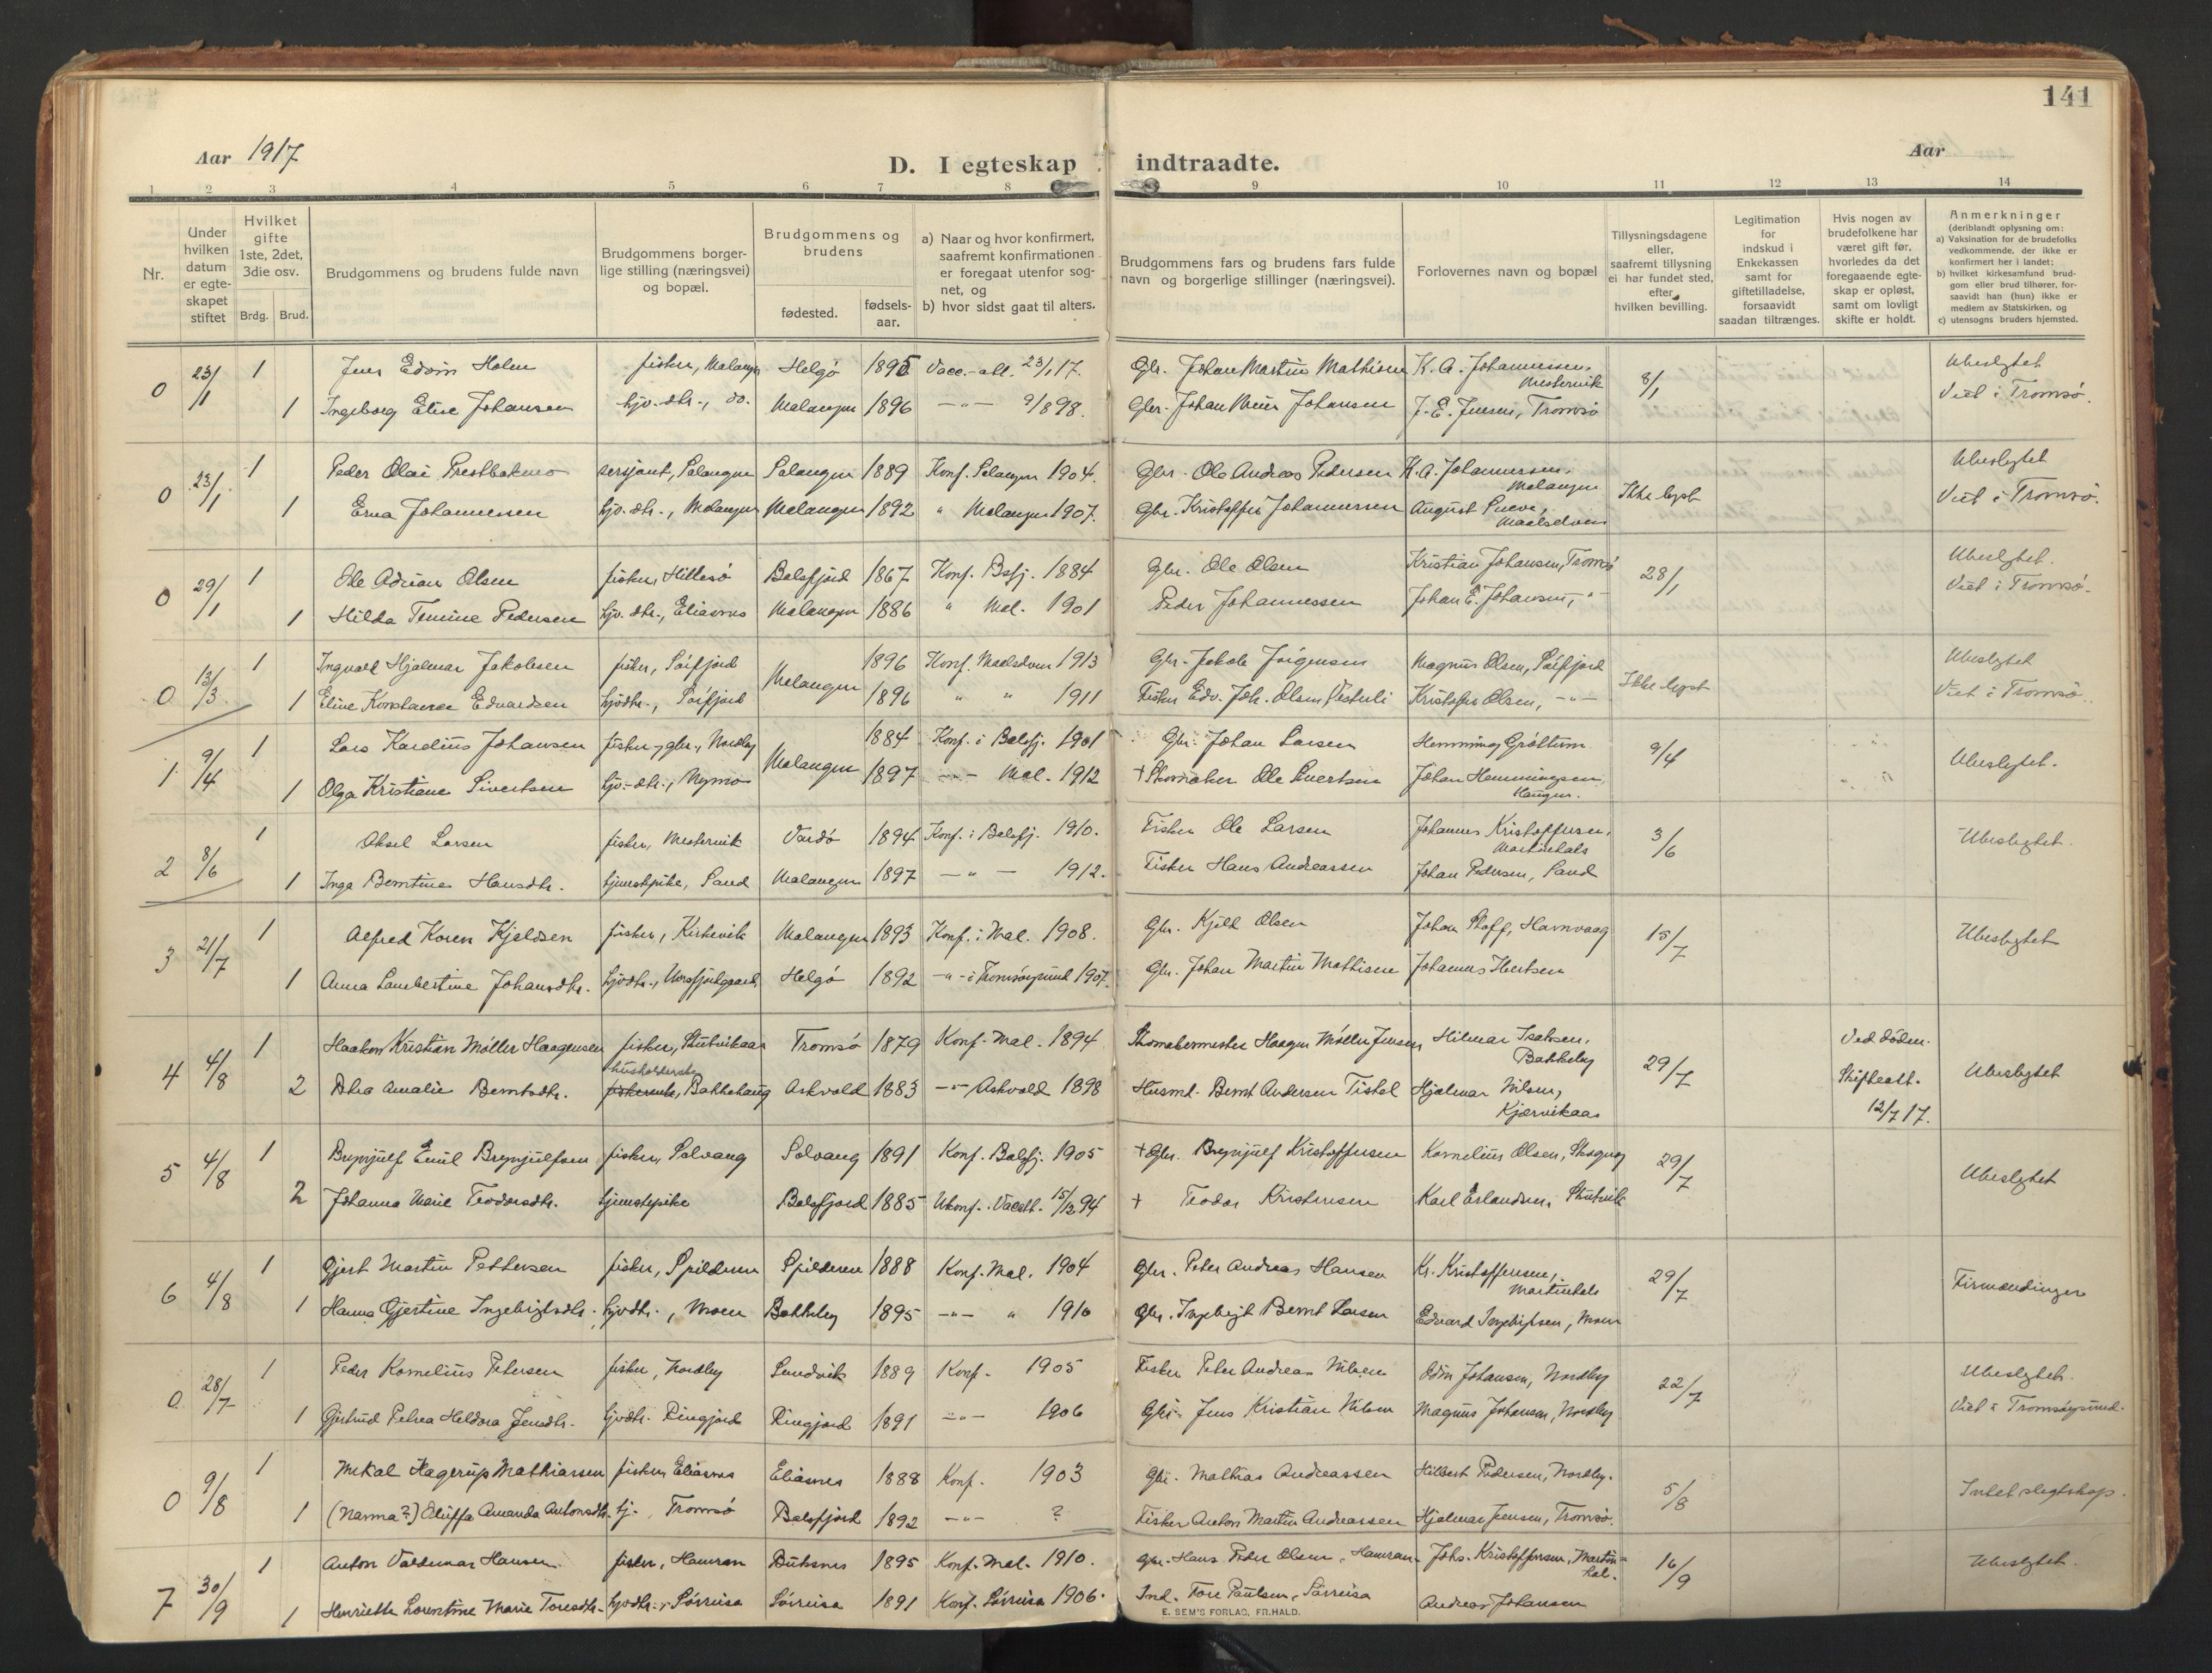 141
Aar 1917
D. I egteskap indtraadte.
Aar
1 2 3 4 5 6 7 8 9 10 11 12 13 14
Nr.
Under hvilken datum er egteskapet stiftet
Hvilket gifte 1ste, 2det, 3die osv.
Brdg. Brud.
Brudgommens og brudens fulde navn
Brudgommens borgerlige stilling (næringsvei) og bopæl.
Brudgommens og brudens
fødested.
fødselsaar.
a) Naar og hvor konfirmert, saafremt konfirmationen er foregaat utenfor sognet, og
b) hvor sidst gaat til alters.
Brudgommens fars og brudens fars fulde navn og borgerlige stillinger (næringsvei).
Forlovernes navn og bopæl
Tillysningsdagene eller, saafremt tillysning ei har fundet sted, efter hvilken bevilling.
Legitimation for indskud i Enkekassen samt for giftetilladelse, forsaavidt saadan tiltrænges.
Hvis nogen av brudefolkene har været gift før, hvorledes da det foregaaende egteskap er opløst, samt om lovligt skifte er holdt.
Anmerkninger (deriblandt oplysning om:
a) Vaksination for de brudefolks vedkommende, der ikke er konfirmert her i landet;
b) hvilket kirkesamfund brudgom eller brud tilhører, forsaavidt han (hun) ikke er medlem av Statskirken, og
c) utensogns bruders hjemsted.
0 23/1 1 Jens Edvin Holm fisker, Malangen Helgö 1895 Vacc.-att. 23/1 17. Gbr. Johan Martin Mathisen K. A. Johannessen, Mestervik 8/1 Ubeslegtet
1 Ingeborg Elise Johansen hjv. dtr., do. Malangen 1896 -"- 9/8 98. Gbr. Johan Johansen J. E. Jensen, Tromsö Viet i Tromsö.
0 23/1 1 Peder Olai Prestbakmo sersjant, Salangen Salangen 1889 Konf. Salangen 1904. Gbr. Ole Andreas Pedersen K. A. Johannessen, Malangen Ikke lyst Ubeslegtet
1 Erna Johannesen hjv. dtr., Malangen Malangen 1892 " Malangen 1907. Gbr. Kristoffer Johannessen August Maalselven Viet i Tromsö.
0 29/1 1 Ole Adrian Olsen fisker, Hillesö Balsfjord 1867 Konf. Bsfj. 1884 Gbr. Ole Olsen Kristian Johansen, Tromsö 28/1 Ubeslegtet.
1 Hilda Pedersen hjv. dtr., Eliasnes Malangen 1886 " Mal. 1901 Peder Johannessen Johan E. Johansen, -"- Viet i Tromsö.
0 13/3 1 Ingvald Hjalmar Jakobsen fisker, Malangen 1896 Konf. Maalselven 1913 Gbr. Jakob Jörgensen Magnus Olsen, Ikke lyst Ubeslegtet
1 Eline Konstanse Edvardsen hjvdtr., 1896 " " 1911 Fisker Edv. Joh. Olsen Kristoffer Olsen, -"- Viet i Tromsö.
1 9/4 1 Lars Kardius Johansen fisker, gbr., Nordby Malangen 1884 Konf. i Balsfj. 1901 Gbr. Johan Larsen Hemming Gröttum 9/4 Ubeslegtet.
1 Olga Kristiane Sivertsen hjv. dtr., Nymo 1897 -"- Mal. 1912 † Skomaker Ole Sivertsen Johan Hemmingsen,
2 8/6 1 Aksel Larsen fisker, Mestervik Vardö 1894 Konf. i Balsfj. 1910. Fisker Ole Larsen Johannes Kristoffersen, 3/6 Ubeslegtet.
1 Inga Berntine Hansdtr. tjenestpike, Sand Malangen 1897 -"- 1912. Fisker Hans Andreassen Johan Pedersen, Sand
3 21/7 1 Alfred Koren Kjeldsen fisker, Kirkevik Malangen 1893 Konf. i Mal. 1908. Gbr. Kjeld Olsen Johan Havnvaag 15/7 Ubeslegtet
1 Anna Lambertine Johansdtr. hjvdtr., Helgö 1892 -"- i Tromsöysund 1907. Gbr. Johan Martin Mathisen Johannes
4 4/8 1 Haakon Kristian Møller Haagensen fisker, Tromsö 1879 Konf. Mal. 1894 Skomakermester Haagen Møller Jensen Hilmar Isaksen, Bakkeby 29/7 Ved döden. Ubeslegtet
2 Amalie Berntsdtr. husholderske Bakkehaug Askvold 1883 -"- Askvold 1898 Husmd. Bernt Andersen Tistel Hjalmar Nilsen, Kjærvikaas Skifteatt. 12/7 17.
5 4/8 1 Brynjulf Emil Brynjulfsen fisker, Solvang Solvang 1891 Konf. Balsfj. 1905 † Gbr. Brynjulf Kristoffersen Kornelius Olsen, 29/7 Ubeslegtet
2 Johanna Marie Teodorsdtr. tjenestepike Balsfjord 1885 Ukonf. Vacatt. 15/12 94 † Teodor Kristensen Karl Erlandsen,
6 4/8 1 Gjert Martin Pettersen fisker, Spilderen Spilderen 1888 Konf. Mal. 1904 Gbr. Peter Andreas Hansen Kr. Kristoffersen, 29/7 Firmændinger
1 Hanna Gjertine Ingebrigtsdtr. hjvdtr., Moen Bakkeby 1895 -"- " 1910 Gbr. Ingebrigt Bernt Larsen Edvard Ingebrigtsen, Moen
0 28/7 1 Peder Kornelius Petersen fisker, Nordby Sandvik 1889 Konf. 1905 Fisker Peter Andreas Nilsen Edin Johansen, Nordby 22/7 Ubeslegtet.
1 Gjertrud Petrea Heldora Jensdtr. hjvdtr. Ringjord Ringjord 1891 -"- 1906 Gbr. Jens Kristian Nilsen Magnus Johansen, Nordby Viet i Tromsöysund.
0 9/8 1 Mekal Hagerup Mathiassen fisker, Eliasnes Eliasnes 1888 Konf. 1903 Gbr. Mathias Andreassen Hilbert Pedersen, Nordby. 5/8 Intet slegtskap.
1 (Nanna?) Amanda Antonsdtr. tj., Tromsö Balsfjord 1892 -"- ? Fisker Anton Martin Andreassen Hjalmar Jensen, Tromsö.
7 30/9 1 Anton Valdemar Hansen fisker, Hamran Buksnes 1895 Konf. Mal. 1910. Gbr. Hans Peder Olsen, Hamran Johs. Kristoffersen, 16/9 Ubeslegtet.
1 Henriette Lorentine Marie Toresdtr. hjvdtr., Sörreisa Sörreisa 1891 Konf. Sörreisa 1906. Ind. Tore Paulsen, Sörreisa Andreas Johansen
E. SEM'S FORLAG, FR.HALD.